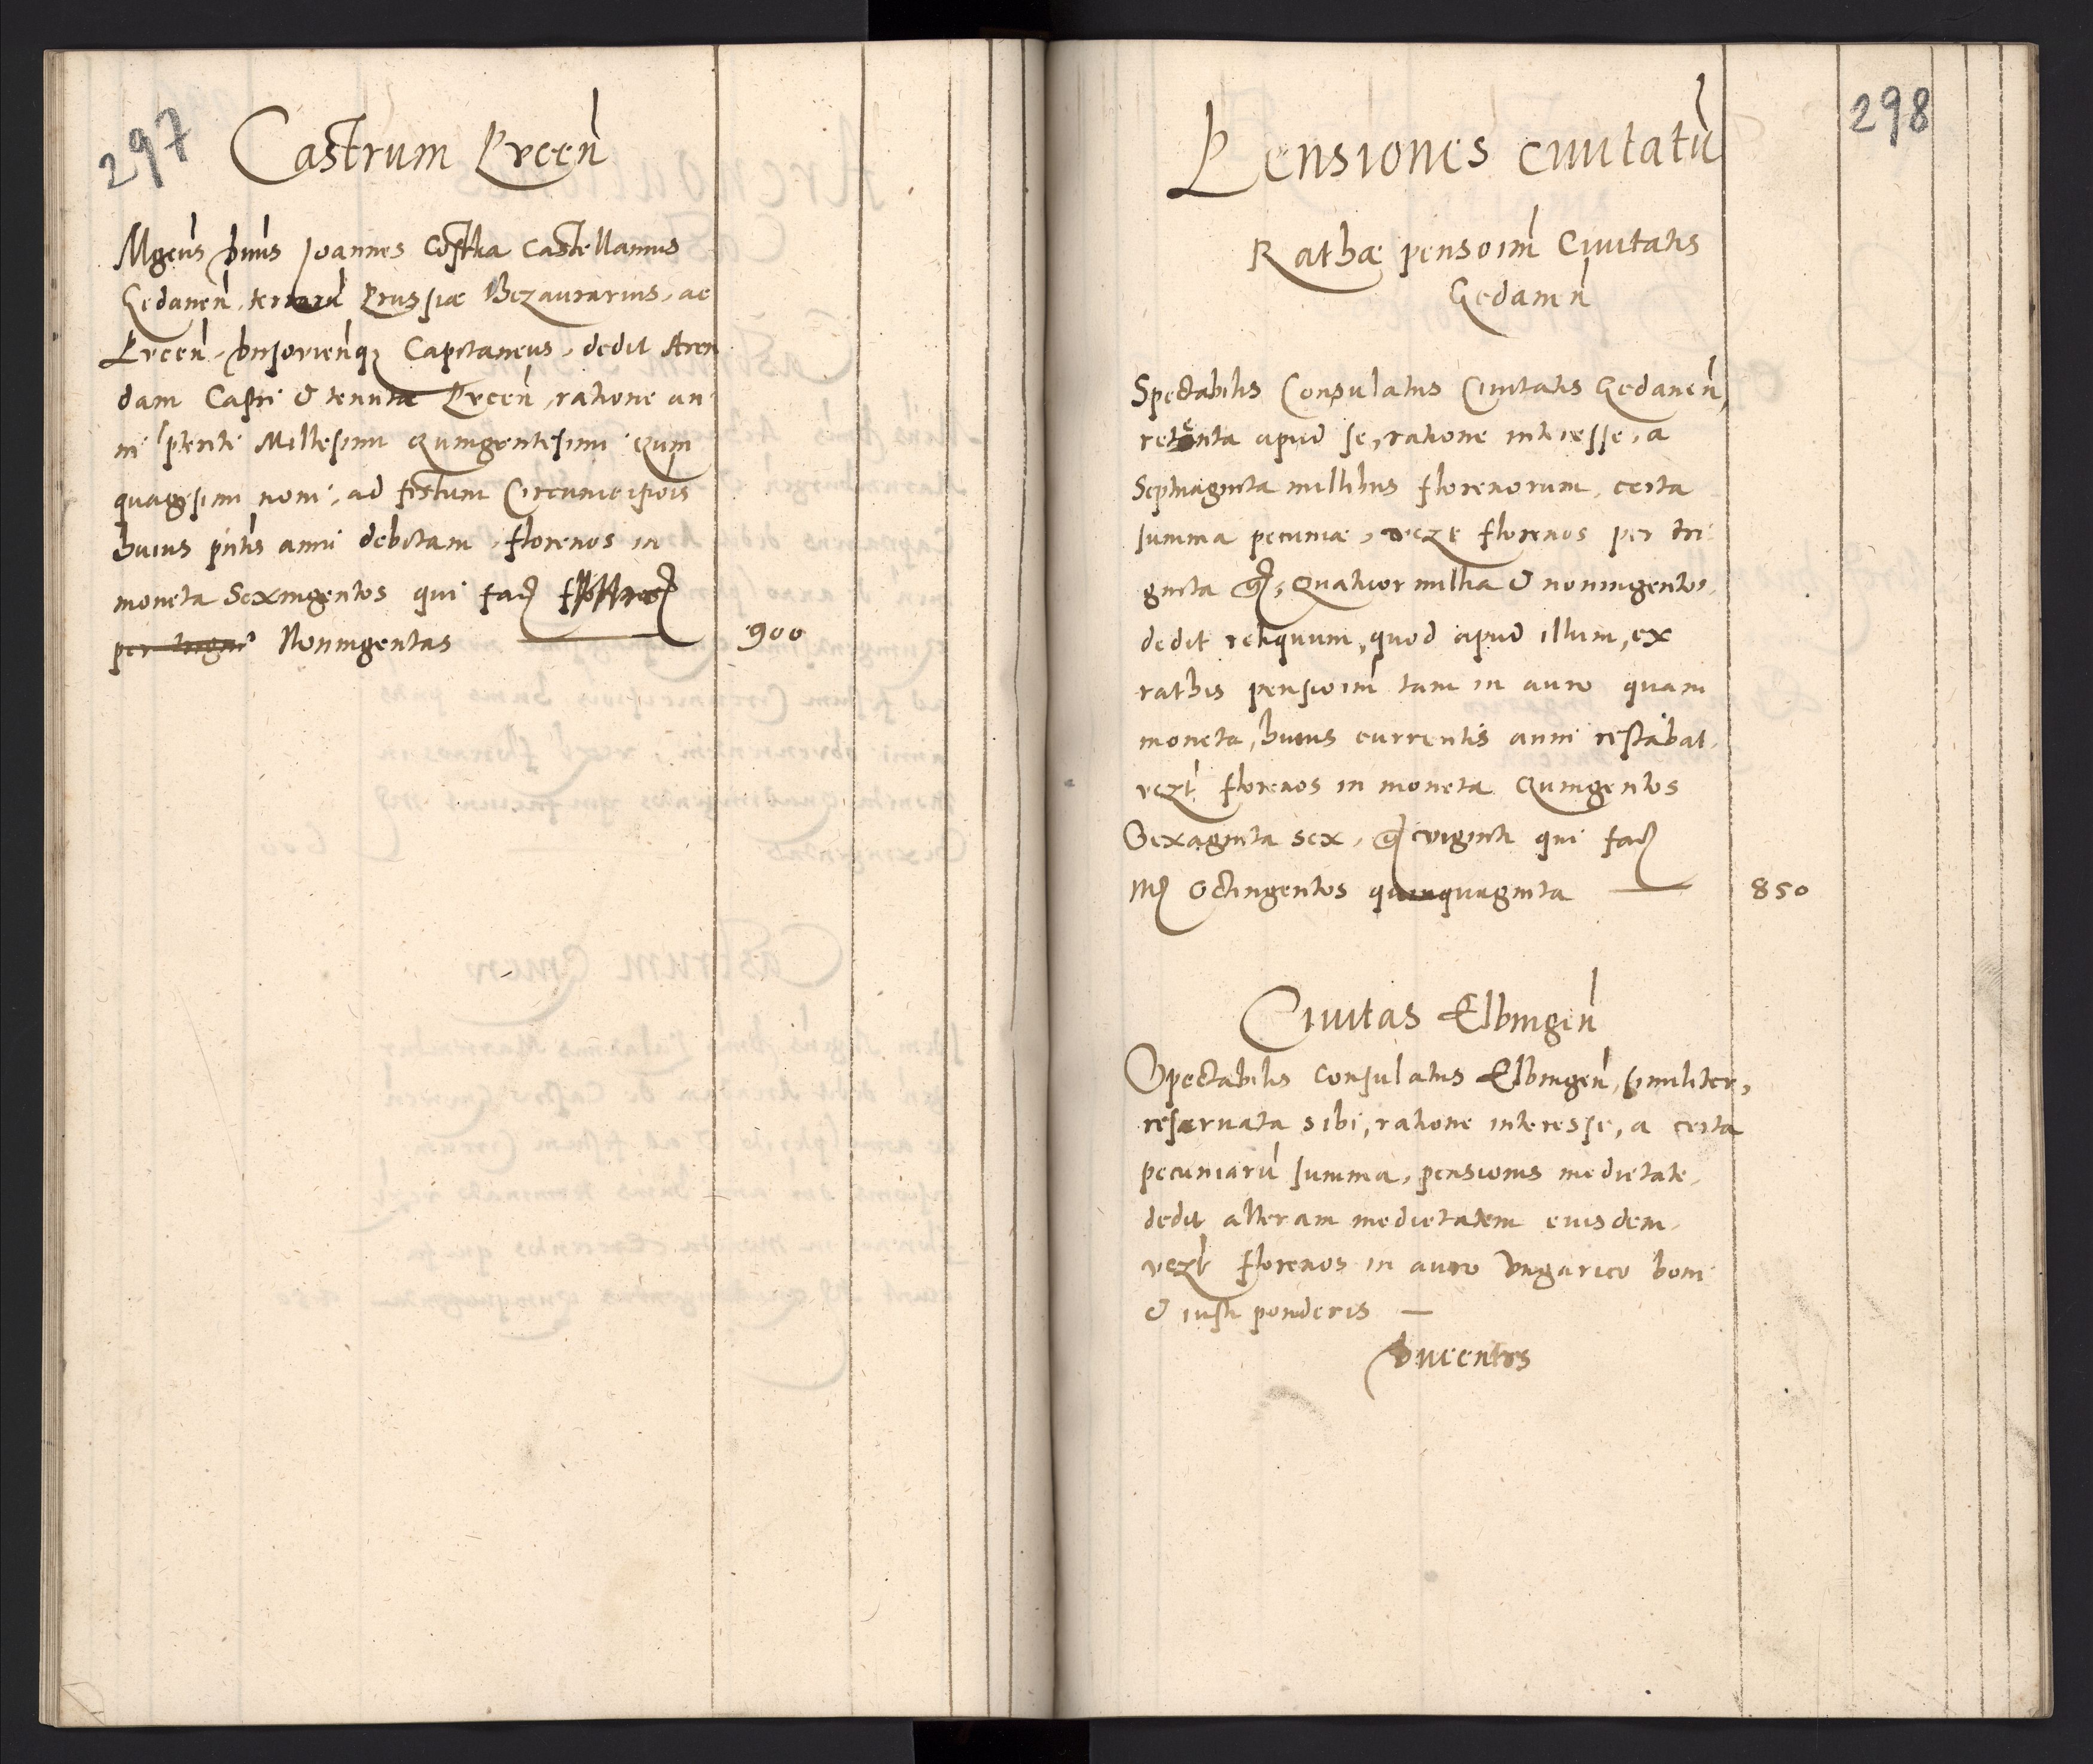 297
Castrum Pucen̄
Mgcūs Dnūs Joannes Costka Castellanus
Gedanen̄, terrarū Prussiæ Thezaurarius, ac
Pucen̄, Dirsovien̄q Capitaneus, dedit Aren
dam Castri & tenutæ Pucen̄, ratione an
ni pterit Millesimi Quingentesimi Quin
quagesimi noni, ad festum Circumcisiois
huius pntis anni debitam, florenos in
moneta Sexingentos qui fač
per trigin Noningentas 900
298
Pensiones civitatū
Rathæ pensoim̄ Civitatis
Gedanen̄
Spectabilis Consulatus Civitatis Gedanen̄,
retenta apud se, ratione interesse, a
Septuaginta millibus florenorum, certa
summa pecuniæ, vcz florenos per tri
ginta g, Quatuor millia & noningentos,
dedit reliquum, quod apud illum, ex
rathis pensioim̄ tam in auro quam
moneta, huius currentis anni restabat,
vczt florenos in moneta Quingentos
Sexaginta sex, g viginti qui fač
M Octingentos quinquaginta 850
Civitas Elbingen̄
Spectabilis Consulatus Elbingen̄, similiter,
reservata sibi, ratione interesse, a certa
pecuniarū summa, pensionis medietate,
dedit alteram medietatem eiusdem,
vczt florenos in auro Vngarico boni
& iusti ponderis
Ducentos